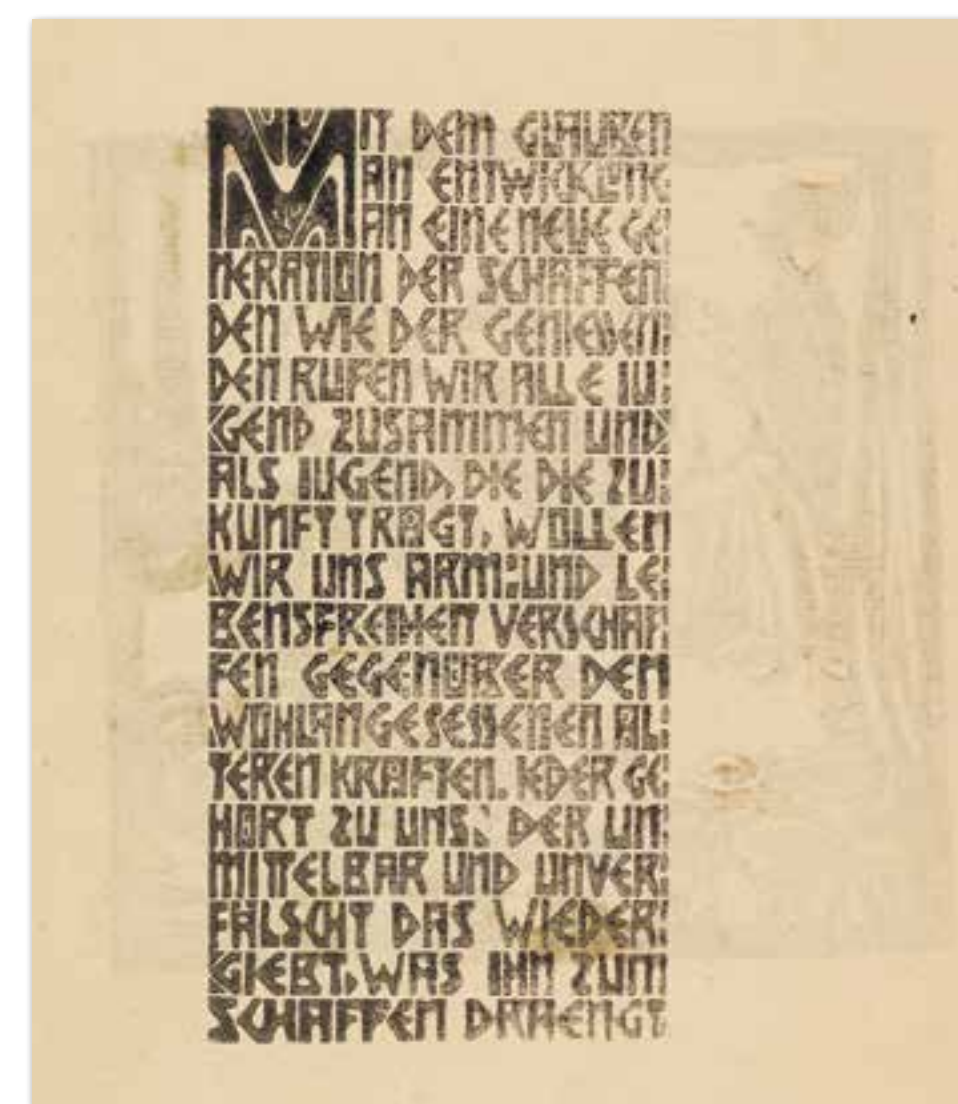 MIT DEM GLAUBEN
AN ENTWICKLUNG
AN EINE NEUE GE:
NERATION DER SCHAFFEN:
DEN WIE DER GENIESSEN:
DEN RUFEN WIR ALLE IU:
GEND ZUSAMMEN UND
ALS IUGEND, DIE DIE ZU:
KUNFT TRÄGT, WOLLEN
WIR UNS ARM:UND LE:
BENSFREIHEIT VERSCHAF:
FEN GEGENÜBER DEN
WOHLANGESESSENEN ÄL:
TEREN KRÄFTEN. IEDER GE:
HÖRT ZU UNS, DER UN:
MITTELBAR UND UNVER:
FÄLSCHT DAS WIEDER:
GIEBT, WAS IHN ZUM
SCHAFFEN DRAENGT